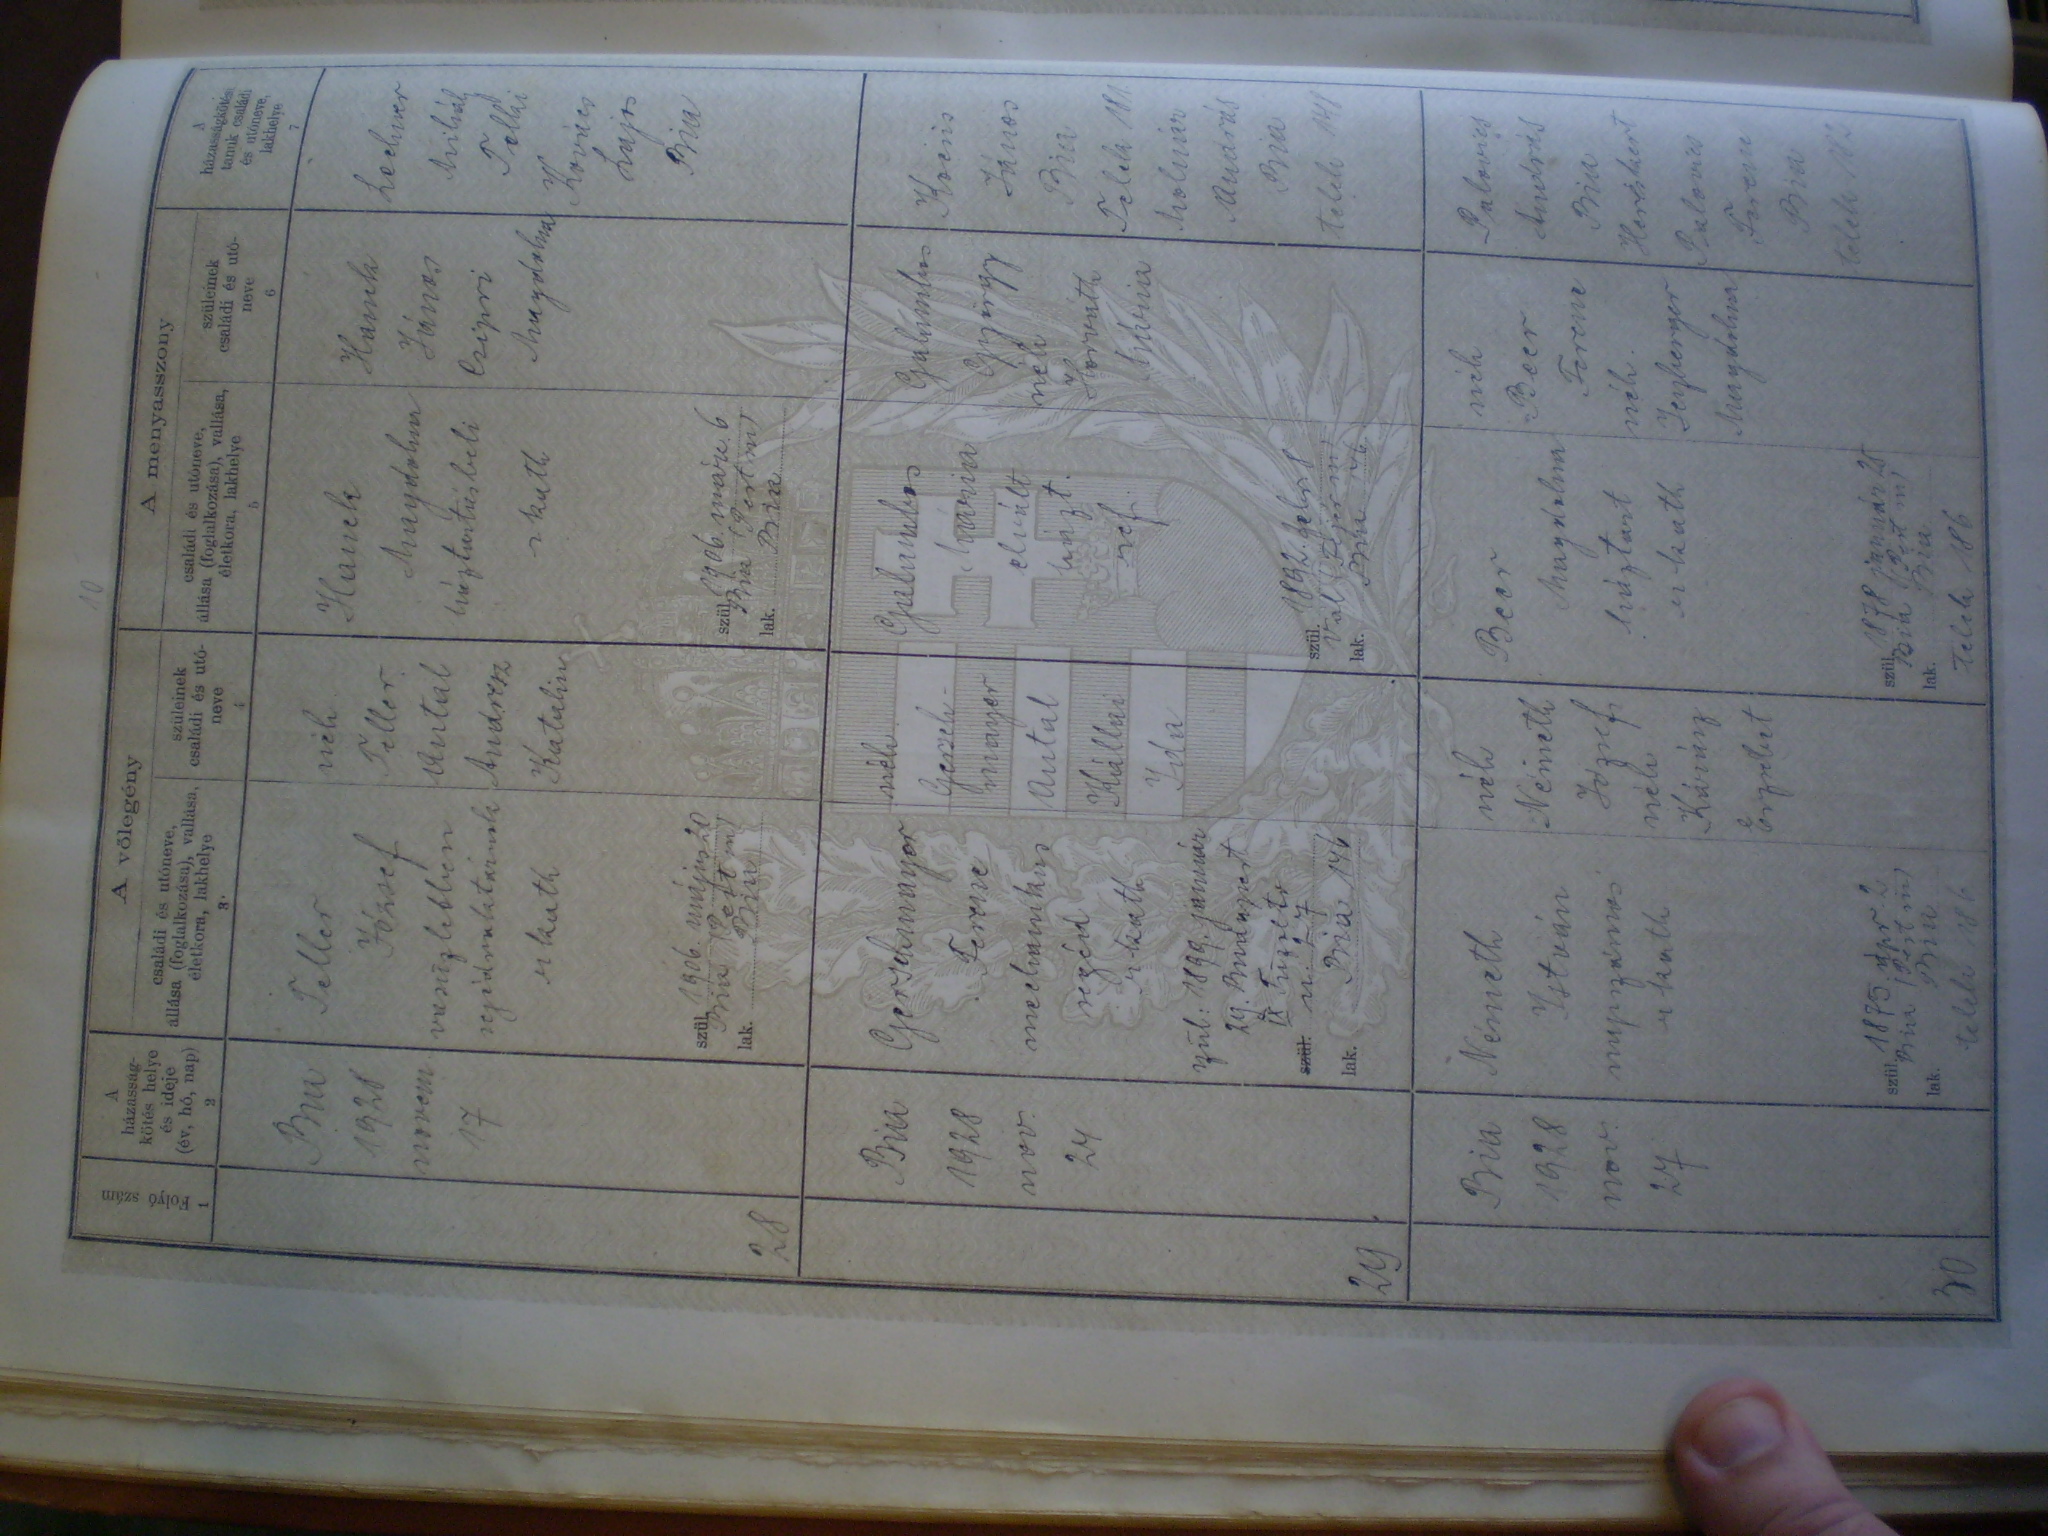 10
A vőlegény
A menyasszony
Folyó szám
1
A
házasság-
kötés helye
és ideje
(év, hó, nap)
2
családi és utóneve,
állása (foglalkozása), vallása,
életkora, lakhelye
3.
szüleinek
családi és utó-
neve
4
családi és utóneve,
állása (foglalkozása), vallása,
életkora, lakhelye
5
szüleinek
családi és utó-
neve
6
A
házasságkötési
tanuk családi
és utóneve,
lakhelye
7
28
Bia
1928
novem
17
Teller
József
r kath
szül. 1906. május 20
Bia (Pest m)
lak. Bia
néh.
Teller
Antal
Andresz
Katalin
Hanek
Magdolna
háztartásbeli
r kath
szül. 1906. márc. 6
Bia (Pest m)
lak. Bia
Hanek
János
Czipri
Magdolna
Lechner
Mihály
Telki
Kovács
Lajos
Bia
29
Bia
1928
nov.
24
Gerschmayer
Ferenc
mechanikus
segéd
r kath
szül: 1899. január
29. Budapest
IX
szül.
lak. Bia 146
néh
Gersch-
mayer
Antal
Kállai
Ida
Galambos
Mária
elvált
házt.
ref.
szül. 1892. febr 8
Vál (Fejér m)
lak. Bia 46
Galambos
György
néh
Horváth
Mária
Kocsis
János
Bia
Telek 181
Molnár
András
Bia
telek 148
30
Bia
1928
nov.
27
Németh
István
napszámos
r kath
szül. 1875 ápr 2
Bia (Pest m)
lak. Bia
telek 186
néh
Németh
József
néh
Erzsébet
Beer
Magdolna
háztart
r kath
szül. 1878 január 25
Bia (Pest m)
lak. Bia
Telek 186
néh
Beer
Ferenc
néh.
Magdolna
Palovics
András
Bia
Palovics
Ferenc
Bia
telek 182